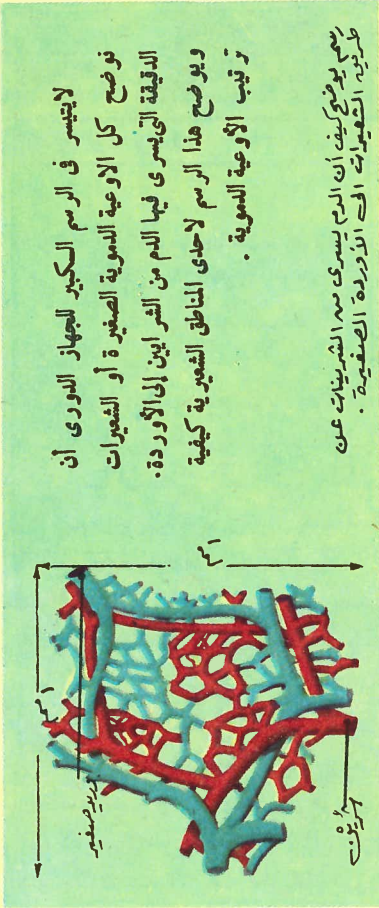 لا يتيسر فى الرسم الكبير للجهاز الدورى أن
نوضح كل الاوعية الدموية الصغيرة أو الشعيرات
الدقيقة التى يسرى فيها الدم من الشرايين إلى الأوردة.
ويوضح هذا الرسم لاحدى المناطق الشعيرية كيفية
ترتيب الأوعية الدموية .
رسم يوضح كيف أن الدم يسرى من الشرينات عن
طريق الشعيرات الى الأوردة الصغيرة .
١ مم
١ مم
وريد صغير
شُرَيْن